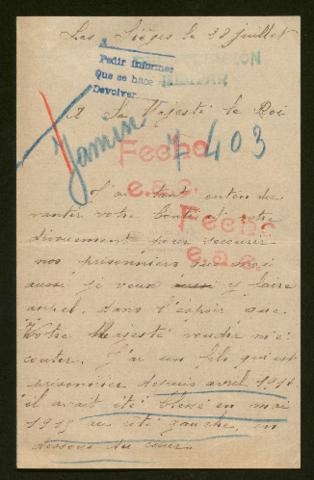 Les Sièges le 28 juillet
Pedir informes
Que se hace
Devolver
A Sa Majesté le Roi
Jamin 7403
Fecha
e.a.c.
Fecha
e.a.c.
J'ai tant entendu
vanter votre bonté et votre
dévouement pour secourir
nos prisonniers que moi
aussi je veux y faire
appel, dans l'espoir que
Votre Majesté voudra m'é
couter. J'ai un fils qui est
prisonnier depuis avril 1916
il avait été blessé en mai
1915 au coté gauche, en
dessous du coeur.